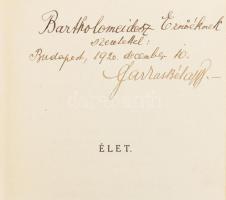 Bartholomeidesz Ernőéknek
szeretettel:
Budapest, 1920. december 10.
ÉLET.